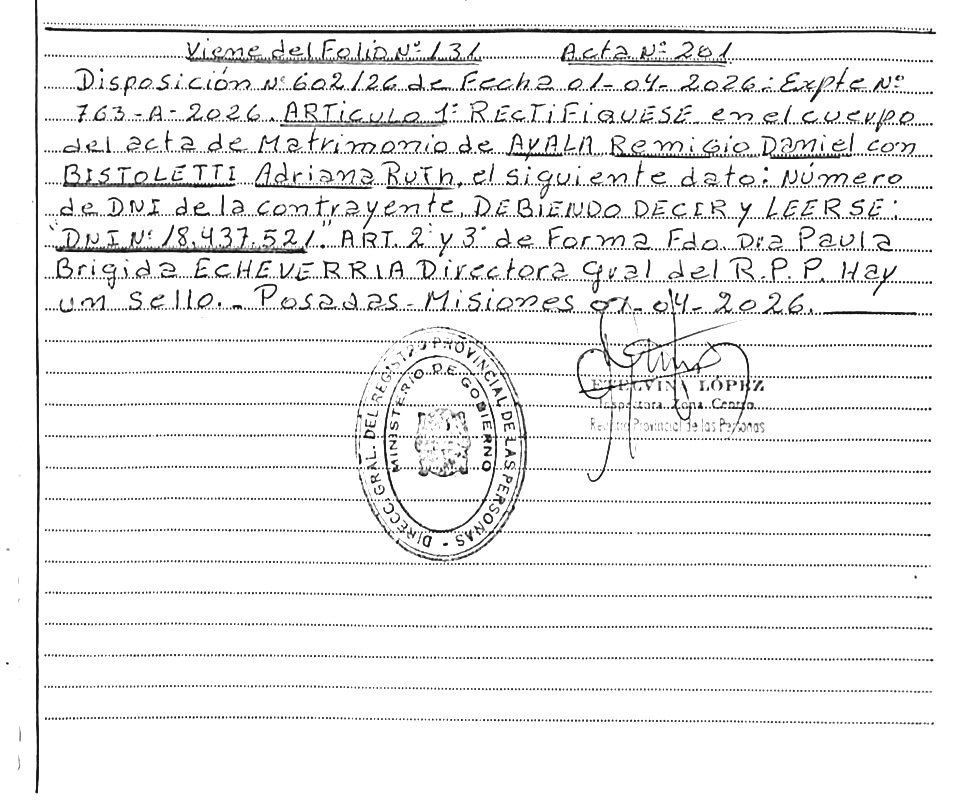 Viene del Folio Nº 131 Acta Nº 201
Disposición Nº 602/26 de Fecha 01-04-2026: Expte Nº
763-A-2026. ARTiculo 1º RECTiFiQUESE en el cuerpo
del acta de Matrimonio de AYALA Remigio Daniel con
BISTOLETTI Adriana Ruth, el siguiente dato: Número
de DNI de la contrayente, DEBIENDO DECIR y LEERSE:
"DNI Nº 18.437.521." ART. 2º y 3º de Forma Fdo. Dra Paula
Brigida ECHEVERRIA Directora Gral del R.P.P. Hay
un Sello._ Posadas-Misiones 01-04-2026.
DIRECC. GRAL. DEL REGISTRO PROVINCIAL DE LAS PERSONAS -
MINISTERIO DE GOBIERNO
ETELVINA LÓPEZ
Inspectora Zona Centro
Registro Provincial de las Personas